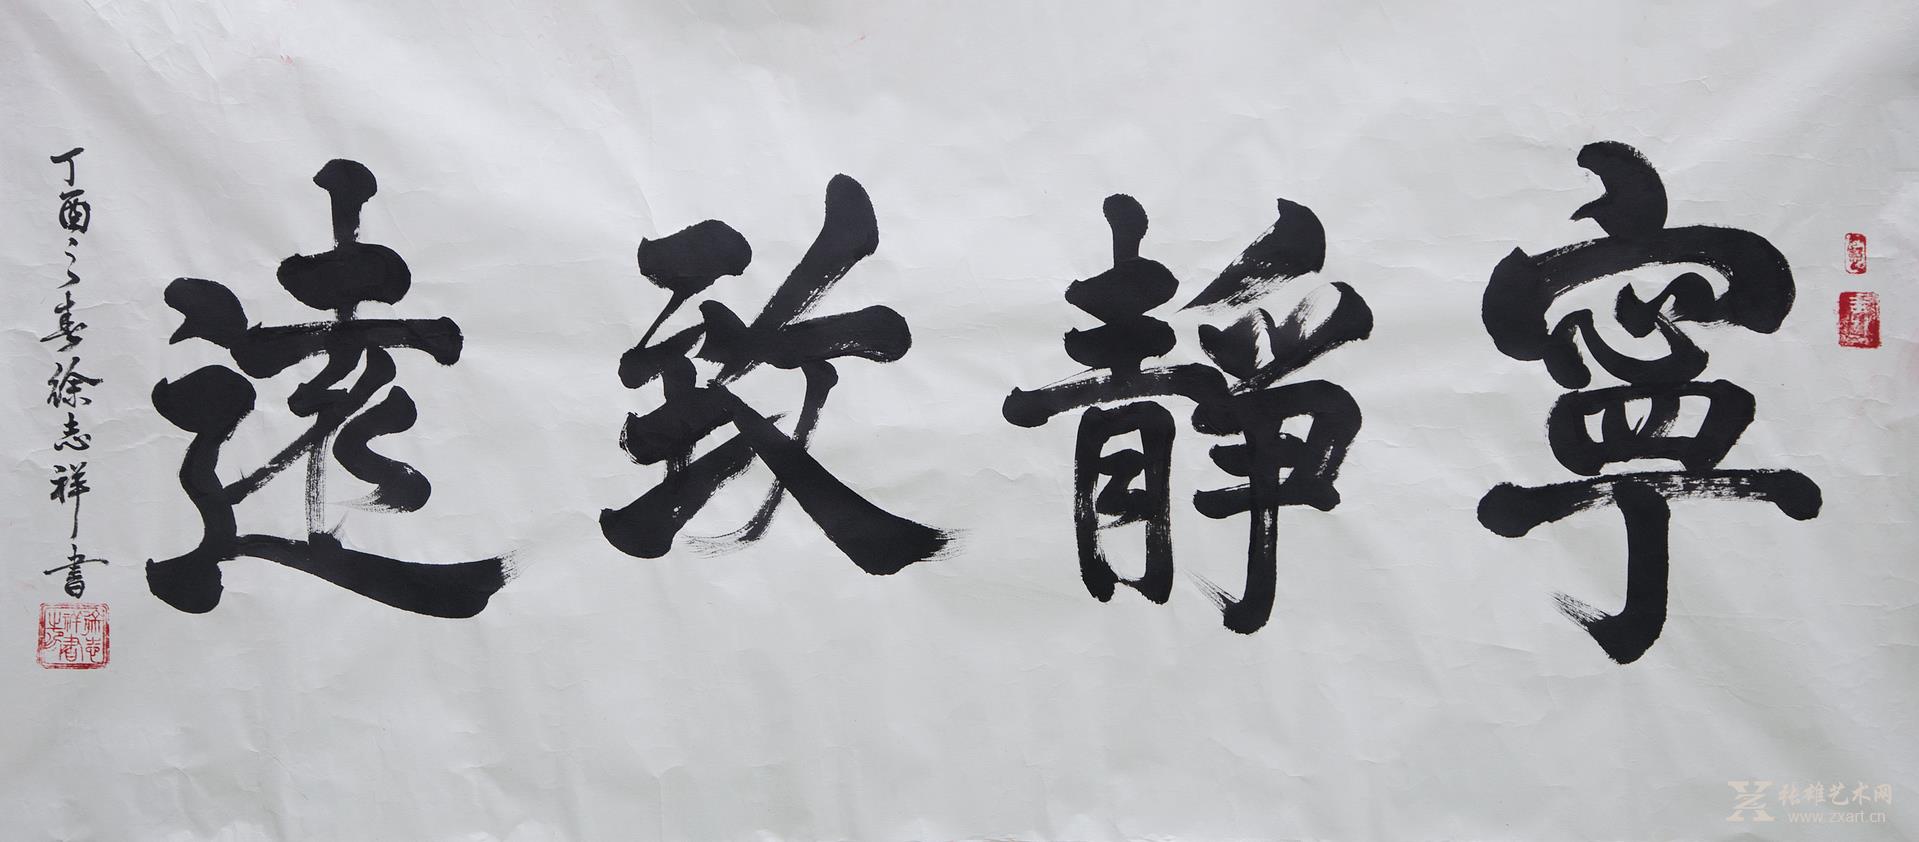 寧靜致遠
丁酉之春徐志祥書
徐志祥書印
张雄艺术网
www.zxart.cn